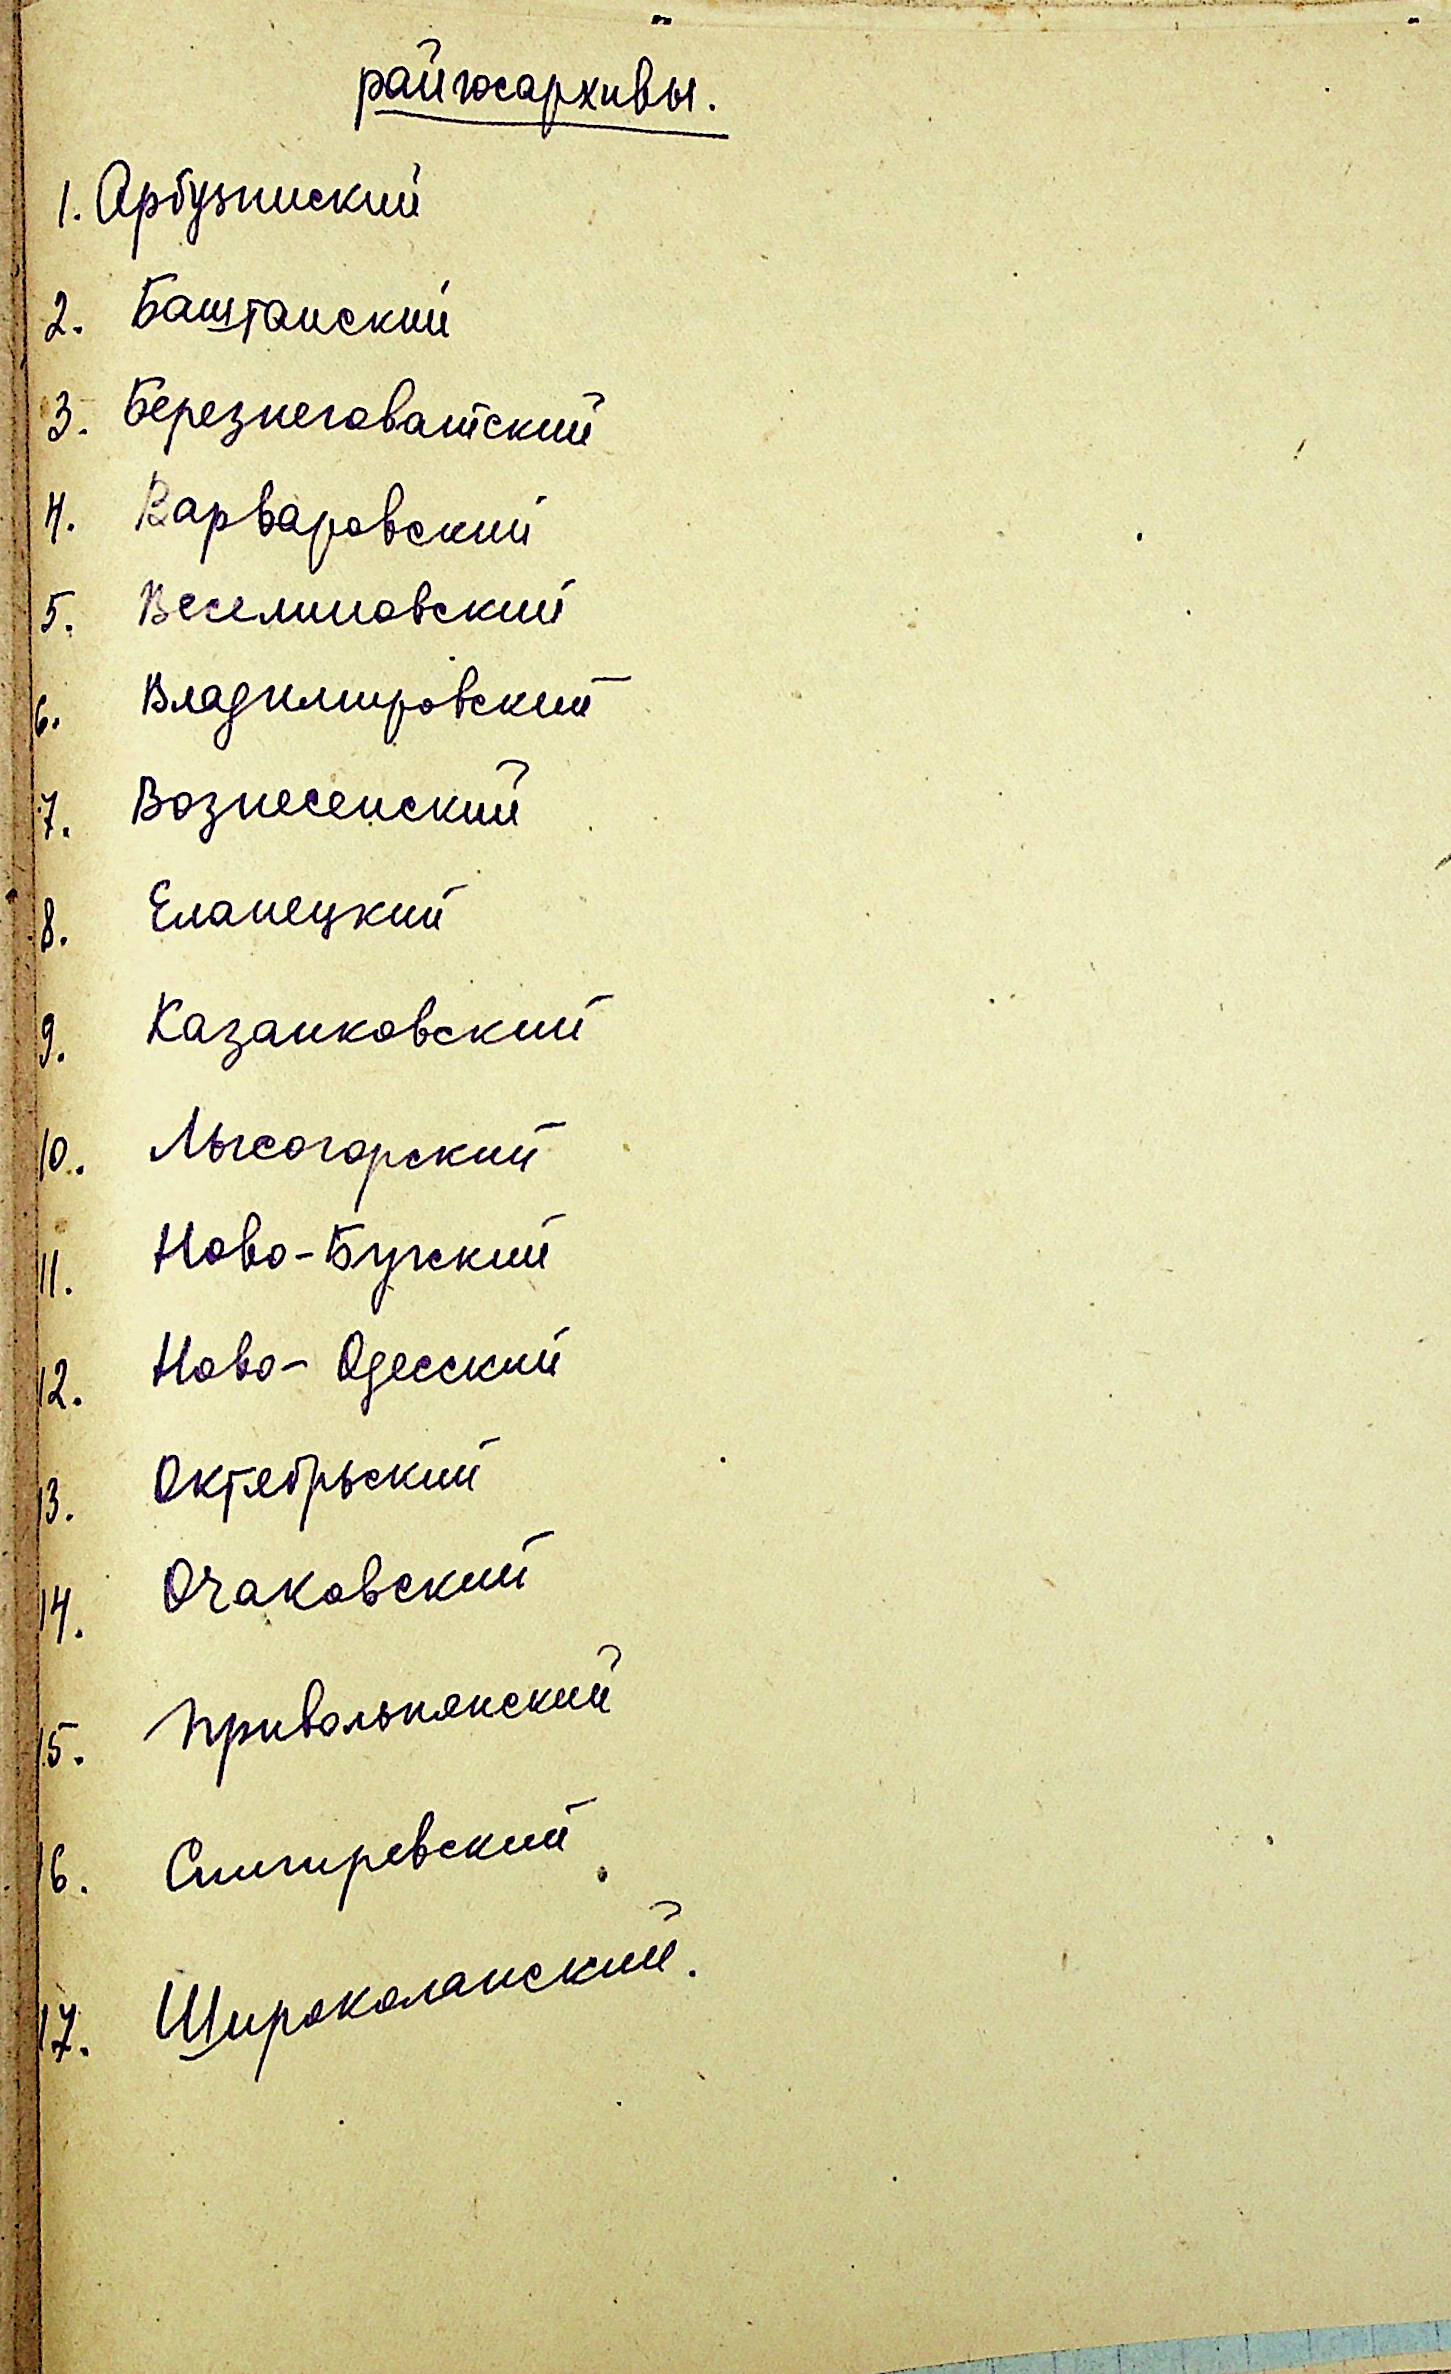 райгосархивы.
1. Арбузинский
2. Баштанский
3. Березнеговатский
4. Варваровский
5. Веселиновский
6. Владимировский
7. Вознесенский
8. Еланецкий
9. Казанковский
10. Лысогорский
11. Ново-Бугский
12. Ново-Одесский
13. Октябрьский
14. Очаковский
15. Привольнянский
16. Снигиревский
17. Широколанский.